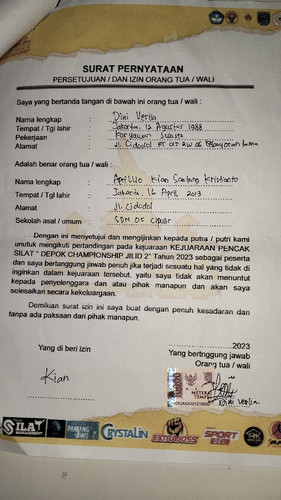 SURAT PERNYATAAN
PERSETUJUAN / DAN IZIN ORANG TUA / WALI
Saya yang bertanda tangan di bawah ini orang tua / wali :
Nama lengkap : Dini Verlia
Tempat / Tgl lahir : Jakarta, 12 Agustus 1988
Pekerjaan : Karyawan Swasta
Alamat : Jl. Cidodol RT 011 RW 06
Adalah benar orang tua / wali :
Nama lengkap : Kian Santang Kristianto
Tempat / Tgl lahir : Jakarta, 16 April 2013
Alamat : Jl. Cidodol
Sekolah asal / umum :
Dengan ini menyetujui dan mengijinkan kepada putra / putri kami
unutuk mengikuti pertandingan pada kejuaraan KEJUARAAN PENCAK
SILAT " DEPOK CHAMPIONSHIP JILID 2" Tahun 2023 sebagai peserta
dan saya bertanggung jawab penuh jika terjadi sesuatu hal yang tidak di
inginkan dalam kejuaraan tersebut, yaitu saya tidak akan menuntut
kepada penyelenggara dan atau pihak manapun dan akan saya
selesaikan secara kekeluargaan.
Demikian surat izin ini saya buat dengan penuh kesadaran dan
tanpa ada paksaan dari pihak manapun.
2023
Yang di beri izin
Yang bertnggung jawab
Orang tua / wali
Kian
METERAI
TEMPEL
Dini Verlia
SILAT
CRYSTALIN
EXTRA JOSS
SPORT